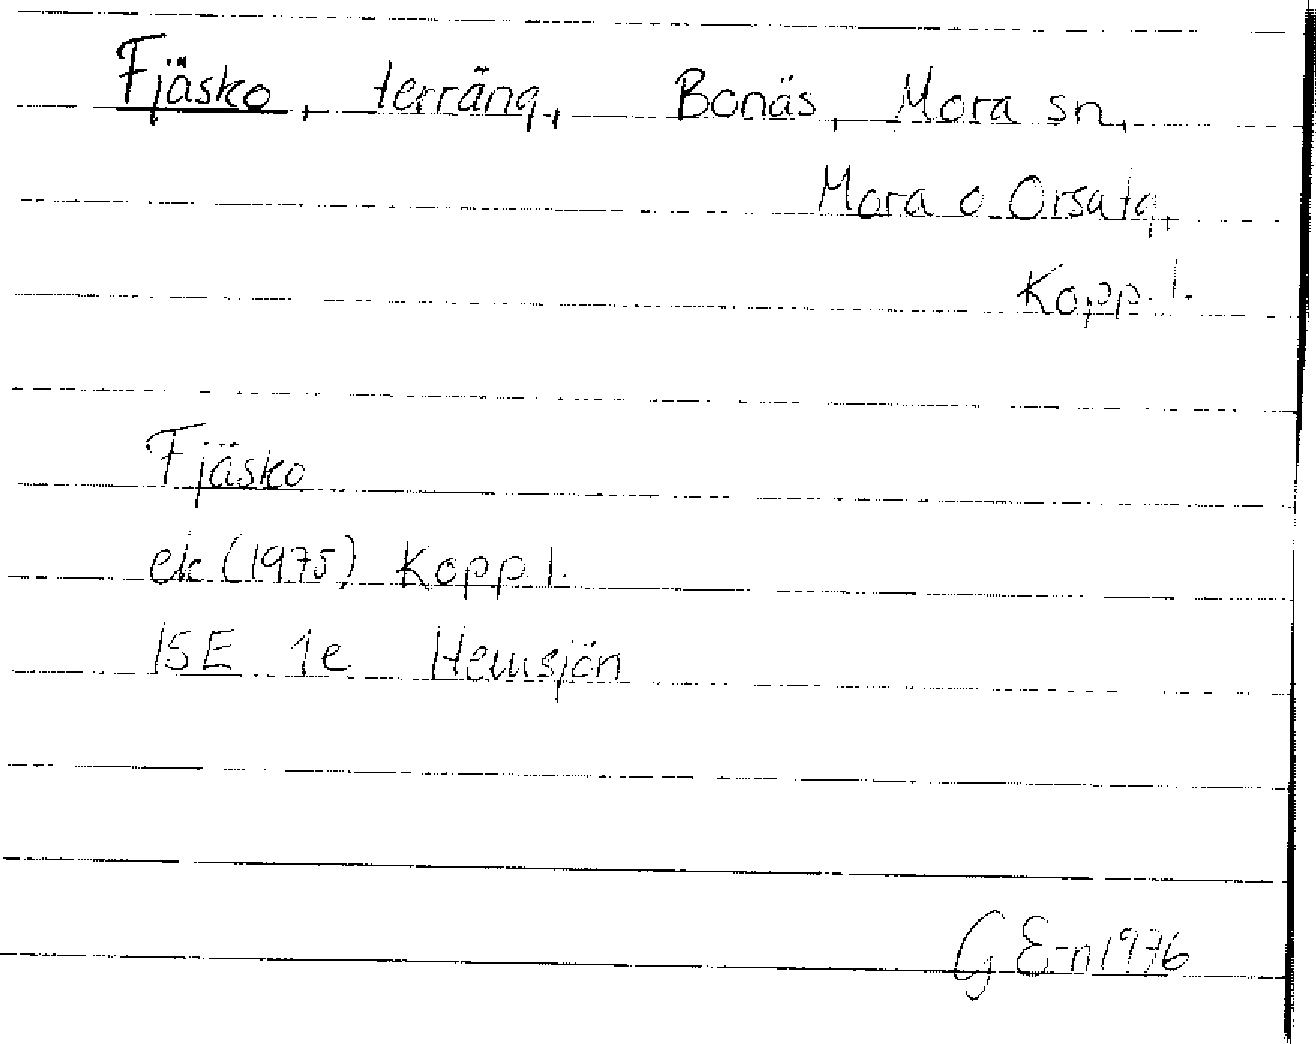 Fjäsko, terräng, Bonäs, Mora sn,
Mora o Orsatg,
Kopp. l.
Fjäsko
ek (1975) Kopp l.
15E 1e Hemsjön
G E-n 1976